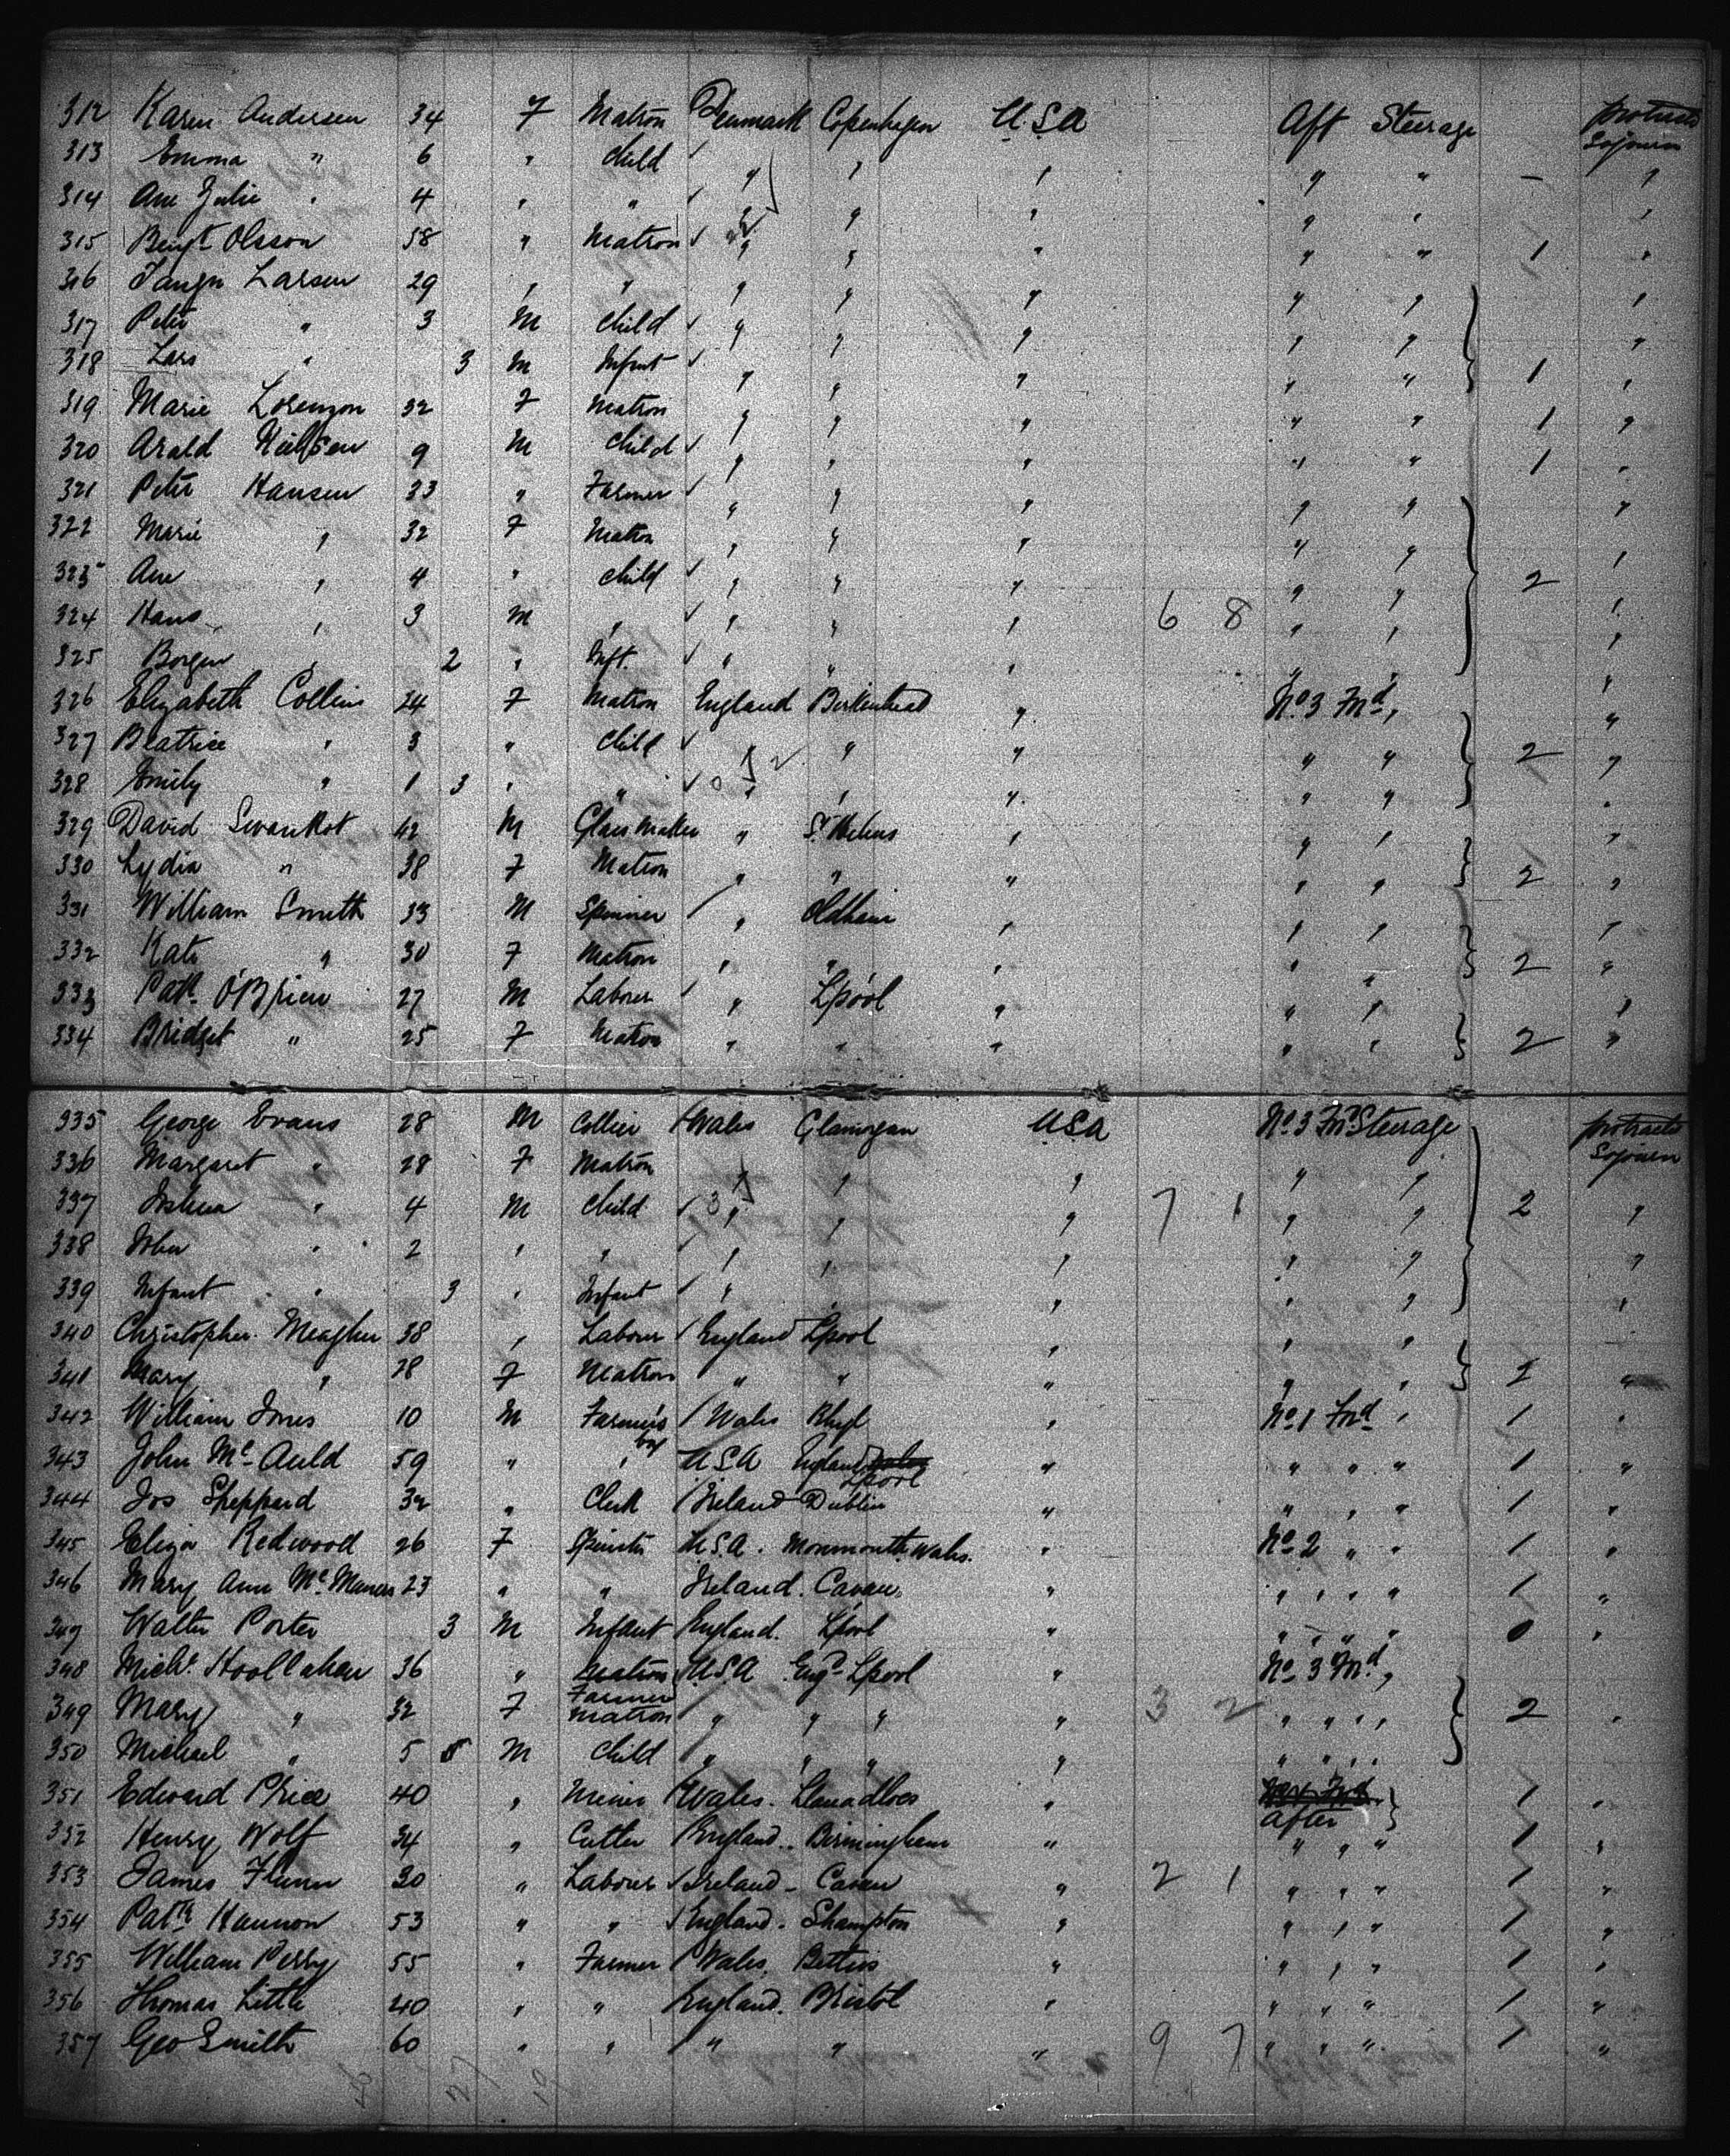 312 Karen Andersen 34 F Matron Denmark Copenhagen U.S.A Aft Steerage protracted Sojourn
313 Emma " 6 " child " " " " " - "
314 Ane Julie " 4 " " " " " " " "
315 Bengt Olsson 58 " Matron " " " " " 1 "
316 Larsen 29 " " " " " " " "
317 Peter " 3 M child " " " " " "
318 Lars " 3 M Infant " " " " " 1 "
319 Marie Lorenzon 32 F Matron " " " " " 1 "
320 Arald Nielsen 9 M child " " " " " 1 "
321 Peter Hansen 33 " Farmer " " " " " "
322 Marie " 32 F Matron " " " " " "
323 Ane " 4 " child " " " " " 2 "
324 Hans " 3 M " " " " 6 8 " " "
325 Borgen " 2 " Inft. " " " " " "
326 Elizabeth Collins 24 F Matron England Birkenhead " No. 3 Fwd " "
327 Beatrice " 3 " child " " " " " 2 "
328 Emily " 1 3 " " " " " " " "
329 David Swankot 42 M Glass Maker " St Helens " " " "
330 Lydia " 38 F Matron " " " " " 2 "
331 William Smith 33 M Spinner " Oldham " " " "
332 Kate " 30 F Matron " " " " " 2 "
333 Patk O'Brien 27 M Laborer " Lpool " " " "
334 Bridget " 25 F Matron " " " " " 2 "
335 George Evans 28 M Collier Wales Glamorgan U.S.A No. 3 Fwd Steerage protracted Sojourn
336 Margaret " 28 F Matron " " " " "
337 Joshua " 4 M Child 3 " " " 7 1 " " 2 "
338 " 2 " " " " " " " "
339 Infant " 3 " Infant " " " " " "
340 Christopher Meagher 38 " Labourer England Lpool " " "
341 Mary " 28 F Matron " " " " " 2 "
342 William Jones 10 M Farmer's boy Wales Rhyl " No. 1 Fwd " 1 "
343 John McAuld 59 " " U.S.A England Lpool " " " " 1 "
344 Jos Sheppard 32 " Clerk Ireland Dublin " " " " 1 "
345 Eliza Redwood 26 F Spinster U.S.A. Monmouth Wales. " No. 2 " " 1 "
346 Mary Ann 23 " " Ireland. Cavan " " " " " 1 "
347 Walter Porter 3 M Infant England. Lpool " " " " " 0 "
348 Michl. Hoollahan 36 " Matron Farmer U.S.A Engd. Lpool " No. 3 Fwd "
349 Mary " 32 F Matron " " " " 3 2 " " " " 2 "
350 Michael " 5 M Child " " " " " " " "
351 Edward Price 40 " Miner Wales. Llanadloes " After 1 "
352 Henry Wolf 34 " Cutler England. Birmingham " " " " 1 "
353 James Flunn 30 " Labourer Ireland - Cavan " 2 1 " " " 1 "
354 Patk Hannon 53 " " England. Shampton " " " " 1 "
355 William Perry 55 " Farmer Wales. Bettws " " " " 1 "
356 Thomas Little 40 " " England. Bristol " " " " 1 "
357 Geo Smith 60 " " " " " 9 7 " " " 1 "